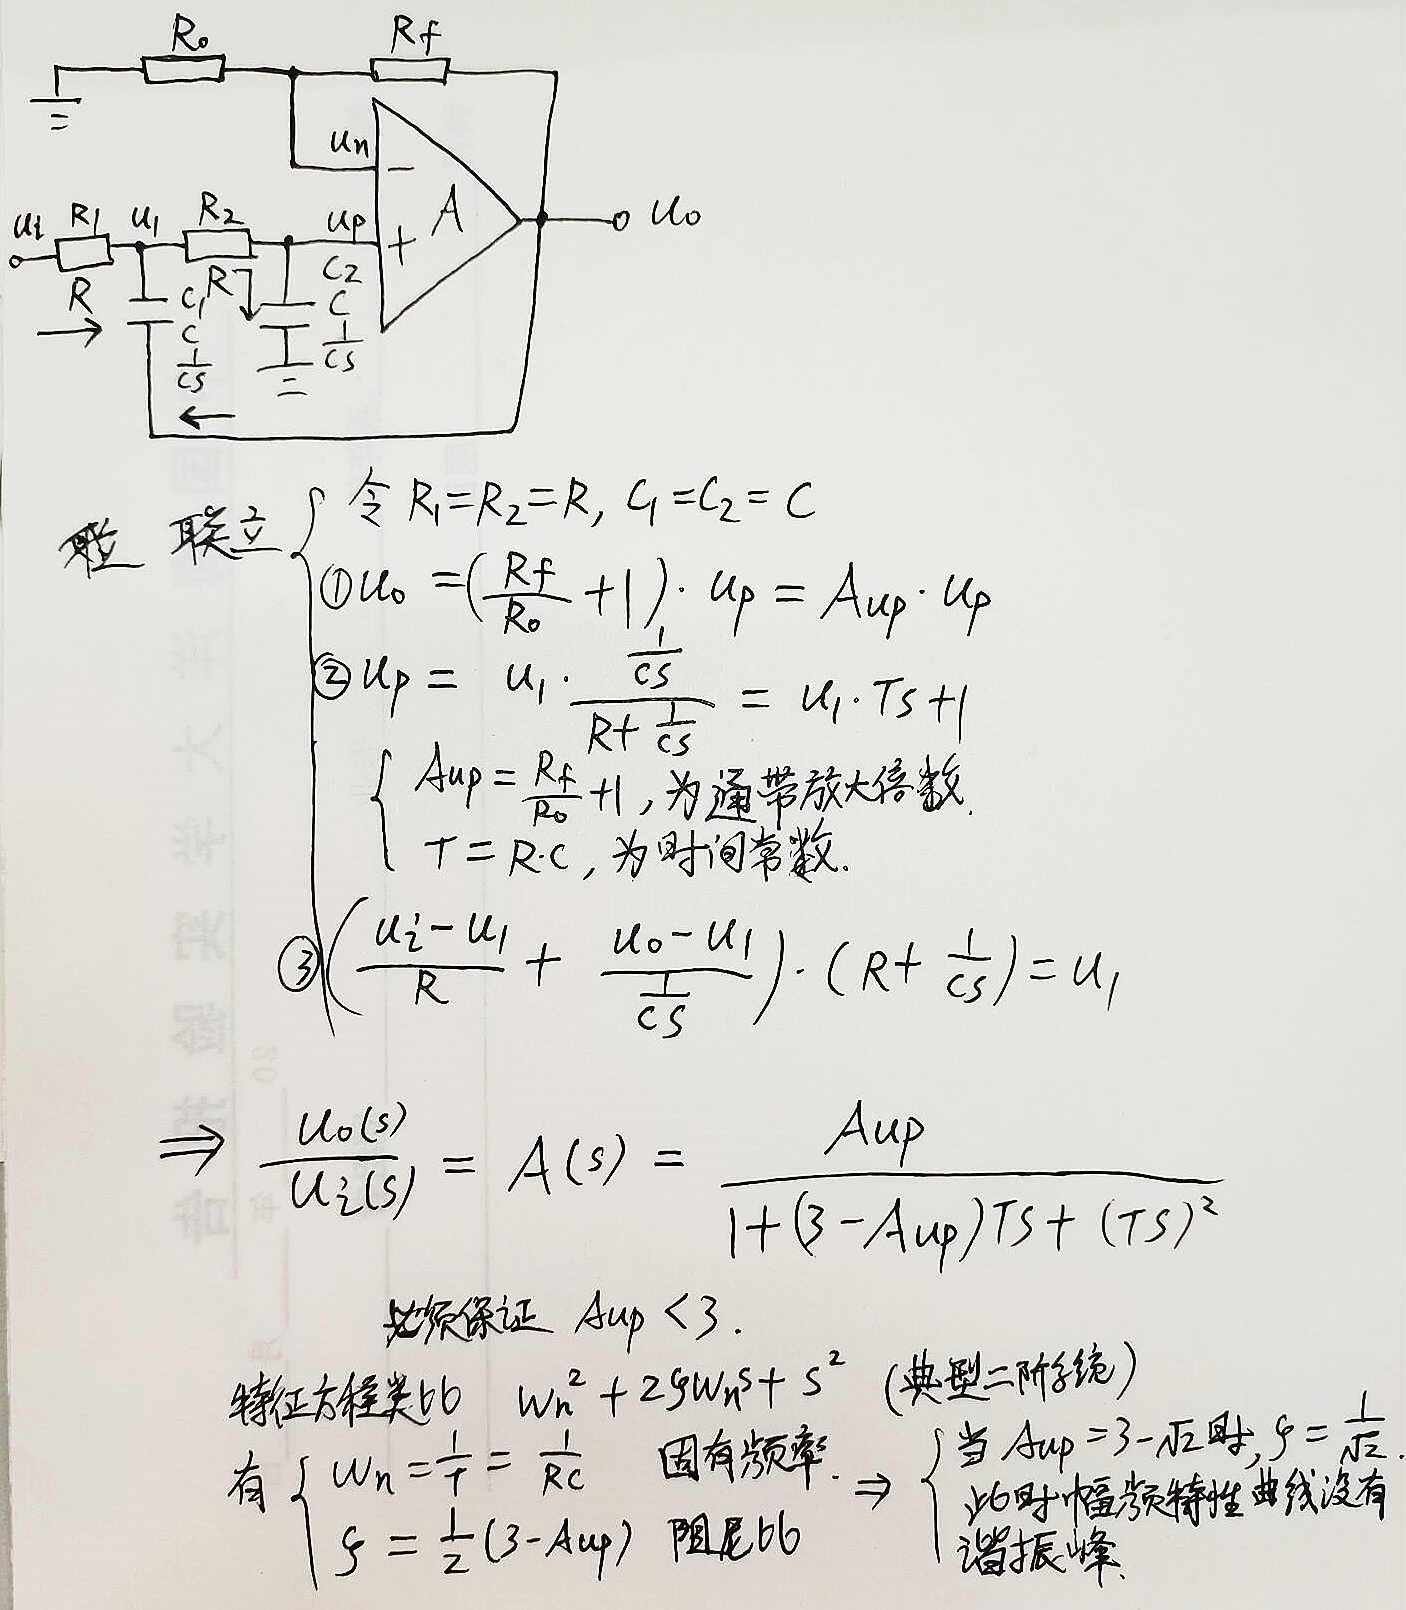 R₀ Rf
un
ui R₁ u₁ R₂ up A u₀
R C₁ R C₂
C C
1/cs 1/cs
联立 令 R₁=R₂=R, C₁=C₂=C
①u₀ =(Rf/R₀+1)·up=Aup·up
②up = u₁·(1/cs)/(R+1/cs) = u₁·Ts+1
Aup=Rf/R₀+1,为通带放大倍数.
T=R·C,为时间常数.
③((ui-u₁)/R + (u₀-u₁)/(1/cs))·(R+1/cs)=u₁
⇒ u₀(s)/ui(s) = A(s) = Aup/(1+(3-Aup)TS+(TS)²)
必须保证 Aup<3.
特征方程类比 Wn²+2ςWnS+S² (典型二阶系统)
有 Wn=1/T=1/RC 固有频率. ⇒ 当 Aup=3-√2时,ς=1/√2.
ς=1/2(3-Aup) 阻尼比 此时幅频特性曲线没有
谐振峰.